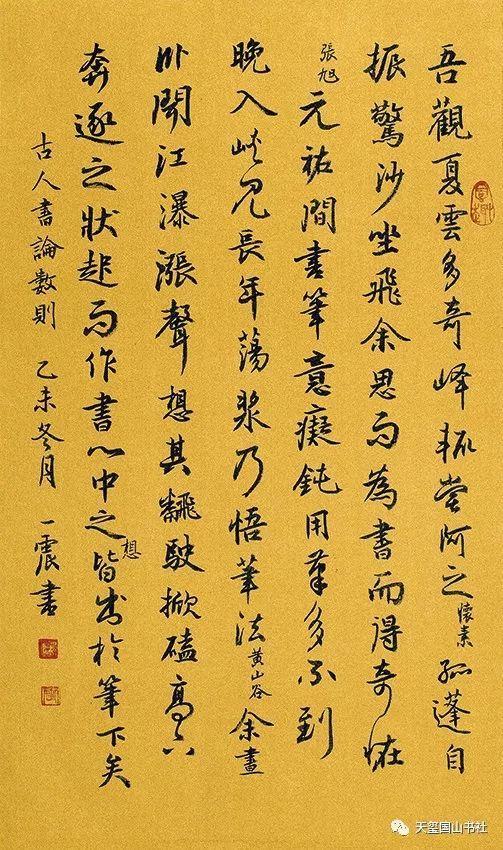 吾觀夏雲多奇峰輒嘗師之懷素孤蓬自
振驚沙坐飛余思而為書而得奇怪
張旭元祐間書筆意癡鈍用筆多不到
晚入峽見長年蕩槳乃悟筆法黃山谷余晝
卧聞江瀑漲聲想其翻駛掀磕高下
奔逐之狀起而作書心中之想皆出於筆下矣
古人書論數則 乙未冬月 一震書
天玺国山书社